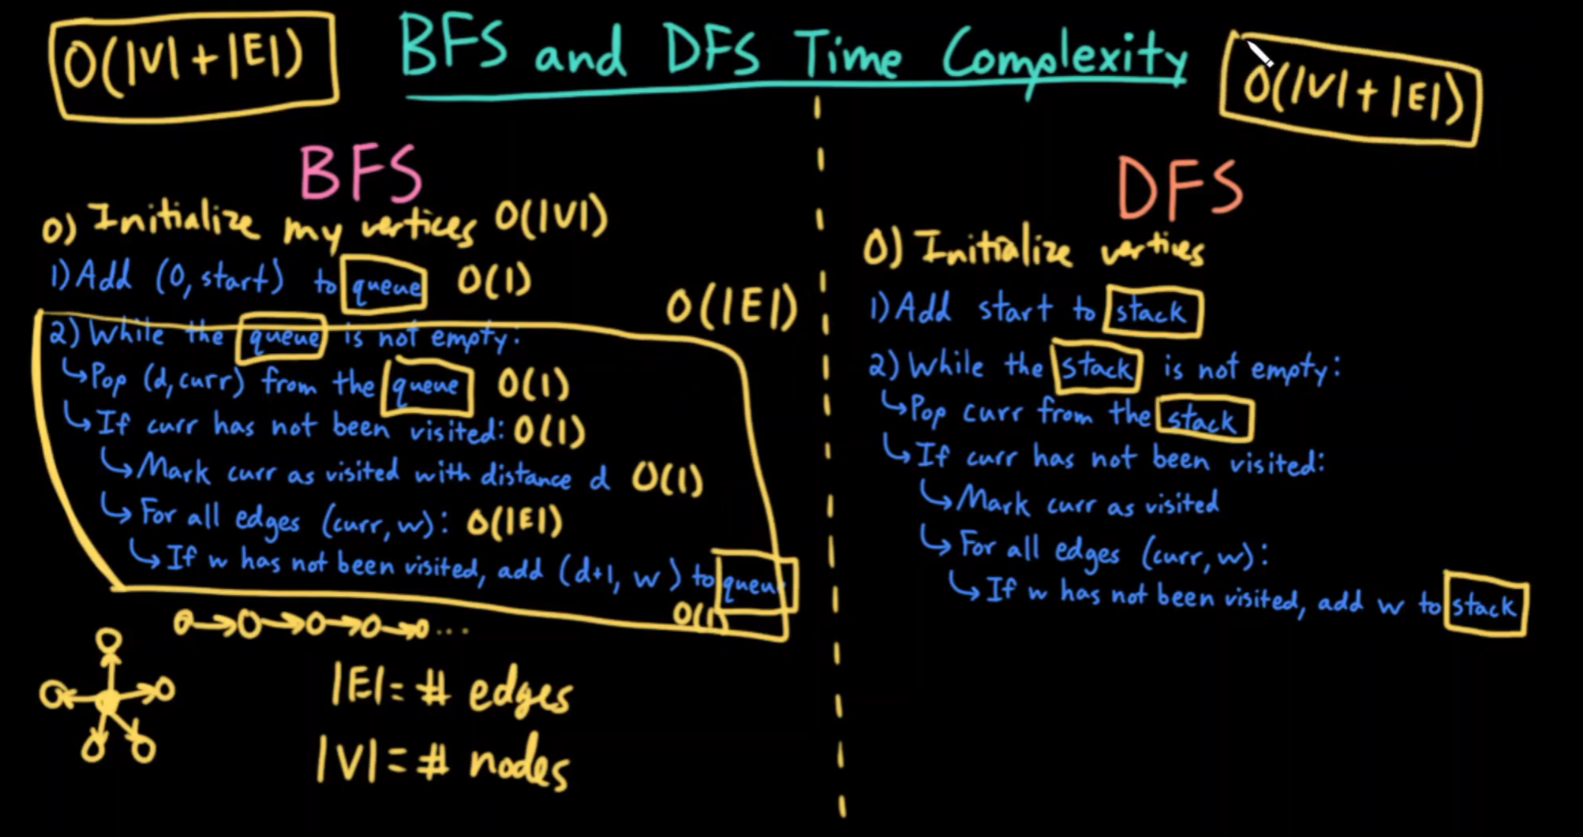 O(|V|+|E|)
BFS and DFS Time Complexity
O(|V|+|E|)
BFS
0) Initialize my vertices O(|V|)
1) Add (0, start) to queue O(1)
O(|E|)
2) While the queue is not empty:
↳ Pop (d, curr) from the queue O(1)
↳ If curr has not been visited: O(1)
↳ Mark curr as visited with distance d O(1)
↳ For all edges (curr, w): O(|E|)
↳ If w has not been visited, add (d+1, w) to queue
O(1)
|E| = # edges
|V| = # nodes
DFS
0) Initialize vertives
1) Add start to stack
2) While the stack is not empty:
↳ Pop curr from the stack
↳ If curr has not been visited:
↳ Mark curr as visited
↳ For all edges (curr, w):
↳ If w has not been visited, add w to stack